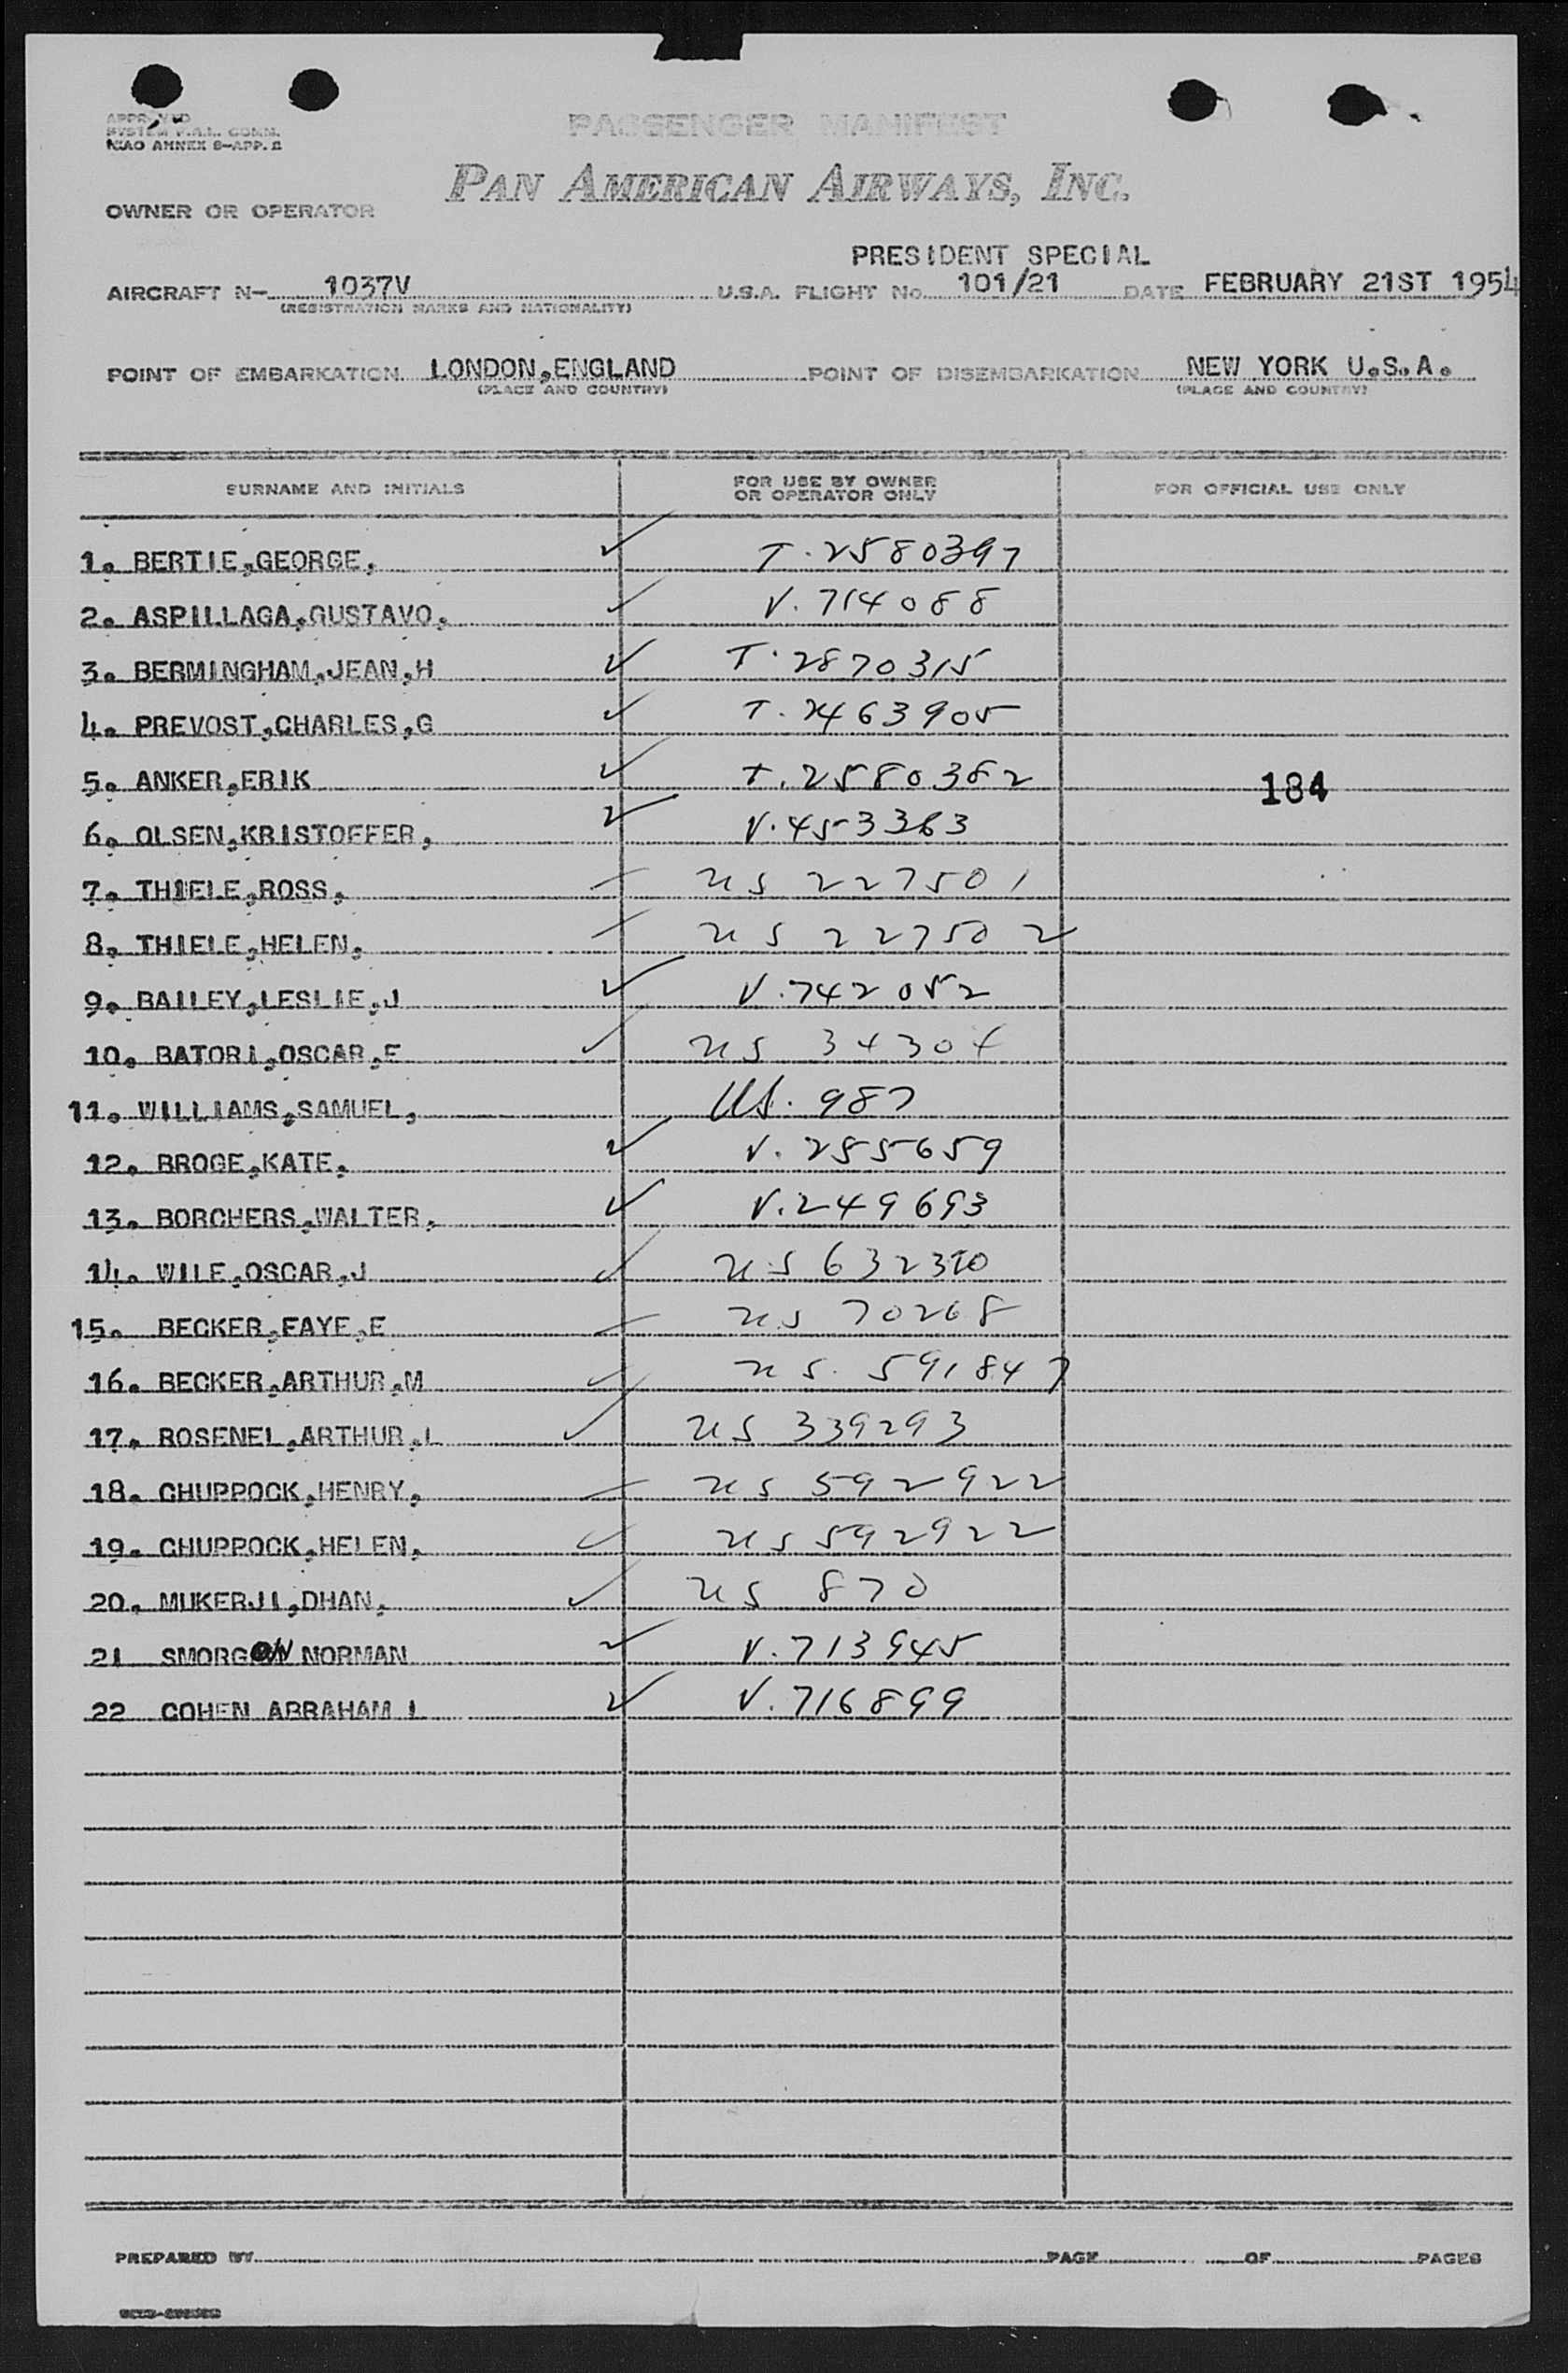 APPROVED
SYSTEM P.A.L. COMM.
ICAO ANNEX 9-APP. 2
PASSENGER MANIFEST
PAN AMERICAN AIRWAYS, INC.
OWNER OR OPERATOR
PRESIDENT SPECIAL
AIRCRAFT N- 1037V U.S.A. FLIGHT No. 101/21 DATE FEBRUARY 21ST 1954
(REGISTRATION MARKS AND NATIONALITY)
POINT OF EMBARKATION LONDON,ENGLAND POINT OF DISEMBARKATION NEW YORK U.S.A.
(PLACE AND COUNTRY) (PLACE AND COUNTRY)
SURNAME AND INITIALS FOR USE BY OWNER OR OPERATOR ONLY FOR OFFICIAL USE ONLY
1. BERTIE,GEORGE, ✓ T.2580397
2. ASPILLAGA,GUSTAVO, ✓ V.714088
3. BERMINGHAM,JEAN,H ✓ T.2870315
4. PREVOST,CHARLES,G ✓ T.2463905
5. ANKER,ERIK ✓ T.2580382 184
6. OLSEN,KRISTOFFER, ✓ V.453363
7. THIELE,ROSS, US 227501
8. THIELE,HELEN, US 227502
9. BAILEY,LESLIE,J ✓ V.742052
10. BATORI,OSCAR,E ✓ US 34304
11. WILLIAMS,SAMUEL, US. 987
12. BROGE,KATE, ✓ V.255659
13. BORCHERS,WALTER, ✓ V.249693
14. WILE,OSCAR,J ✓ US 632310
15. BECKER,FAYE,E US 70268
16. BECKER,ARTHUR,M ✓ US. 591847
17. ROSENEL,ARTHUR,L ✓ US 339293
18. CHUPPOCK,HENRY, US 592922
19. CHUPPOCK,HELEN, ✓ US 592922
20. MUKERJI,DHAN, ✓ US 870
21 SMORGON NORMAN ✓ V.713945
22 COHEN ABRAHAM I ✓ V.716899
PREPARED BY PAGE OF PAGES